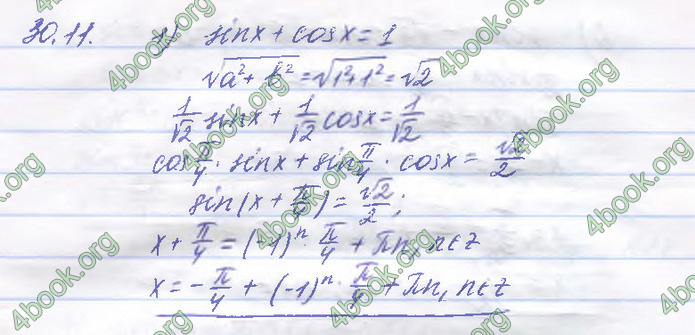 30.11. 1) sinx + cosx = 1
√a²+b² = √1²+1² = √2
1/√2 sinx + 1/√2 cosx = 1/√2
cos π/4 · sinx + sin π/4 · cosx = √2/2
sin(x + π/4) = √2/2;
x + π/4 = (-1)ⁿ · π/4 + πn, n∈z
x = -π/4 + (-1)ⁿ · π/4 + πn, n∈z
4book.org